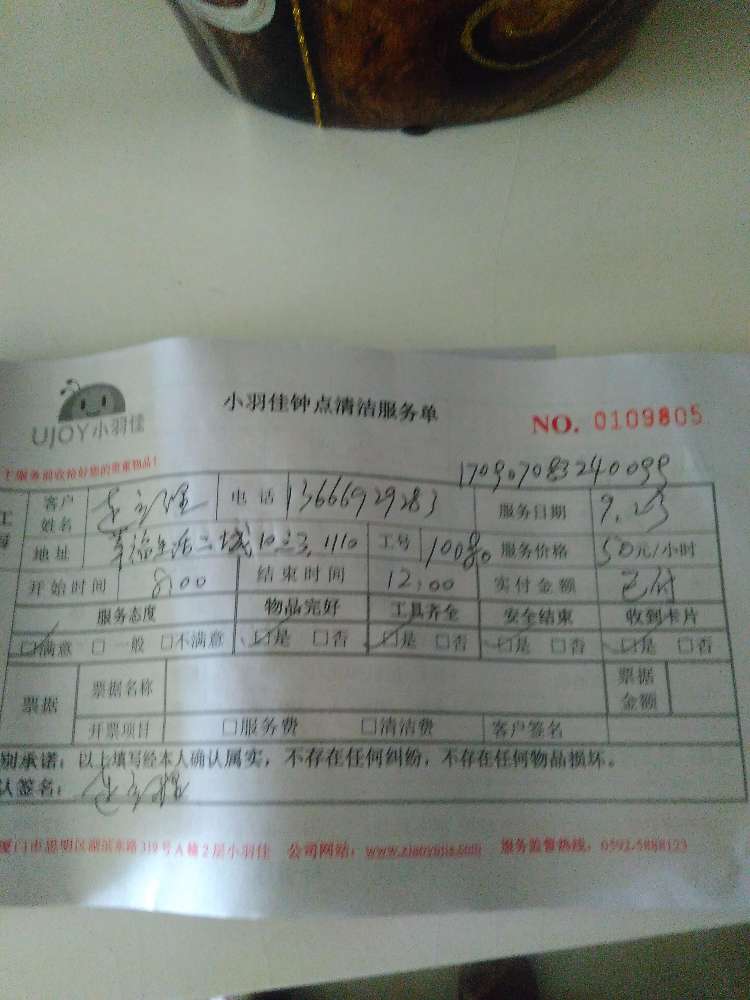 UJOY小羽佳
小羽佳钟点清洁服务单
NO. 0109805
170907083240099
客户姓名 电话 13666929283 服务日期 9.23
地址 工号 10080 服务价格 50元/小时
开始时间 8:00 结束时间 12:00 实付金额 已付
服务态度 物品完好 工具齐全 安全结束 收到卡片
☑满意 □一般 □不满意 ☑是 □否 ☑是 □否 ☑是 □否 ☑是 □否
票据 票据名称 票据金额
开票项目 □服务费 □清洁费 客户签名
别承诺：以上填写经本人确认属实，不存在任何纠纷，不存在任何物品损坏。
认签名：
厦门市思明区湖滨东路319号A幢2层小羽佳 公司网站： 服务监督热线：0592-5888123